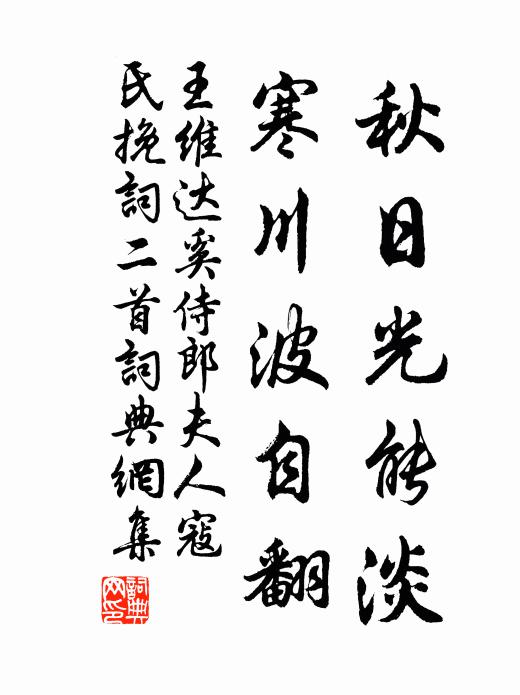 秋日光能淡
寒川波自翻
王維达奚侍郎夫人寇
氏挽詞二首詞典網集
詞典网印